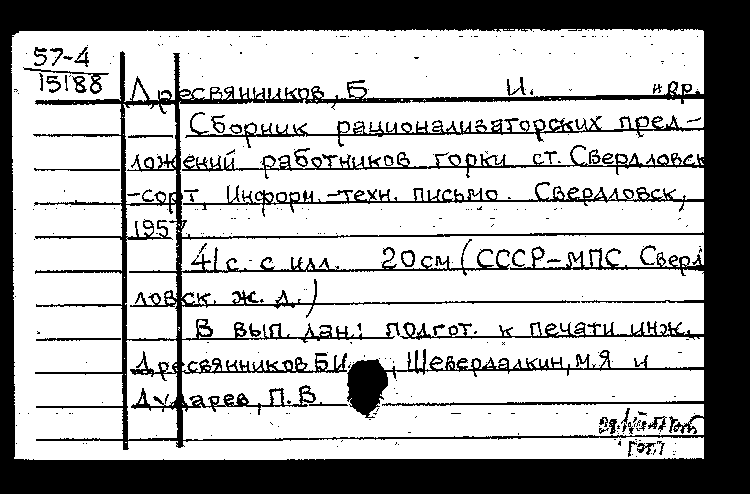 57-4
15188
Дресвянников, Б И. и др.
Сборник рационализаторских пред-
ложений работников горки ст. Свердловск
-сорт, Информ.-техн. письмо. Свердловск,
1957.
41 с. с илл. 20 см (СССР-МПС. Сверд
ловск. ж. д.)
В вып. дан.: подгот. к печати инж.
Дресвянников Б И , Шевердалкин, М.Я и
Дударев, П. В.